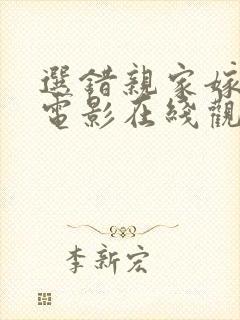 選錯親家嫁
電影在綫觀
李新宏